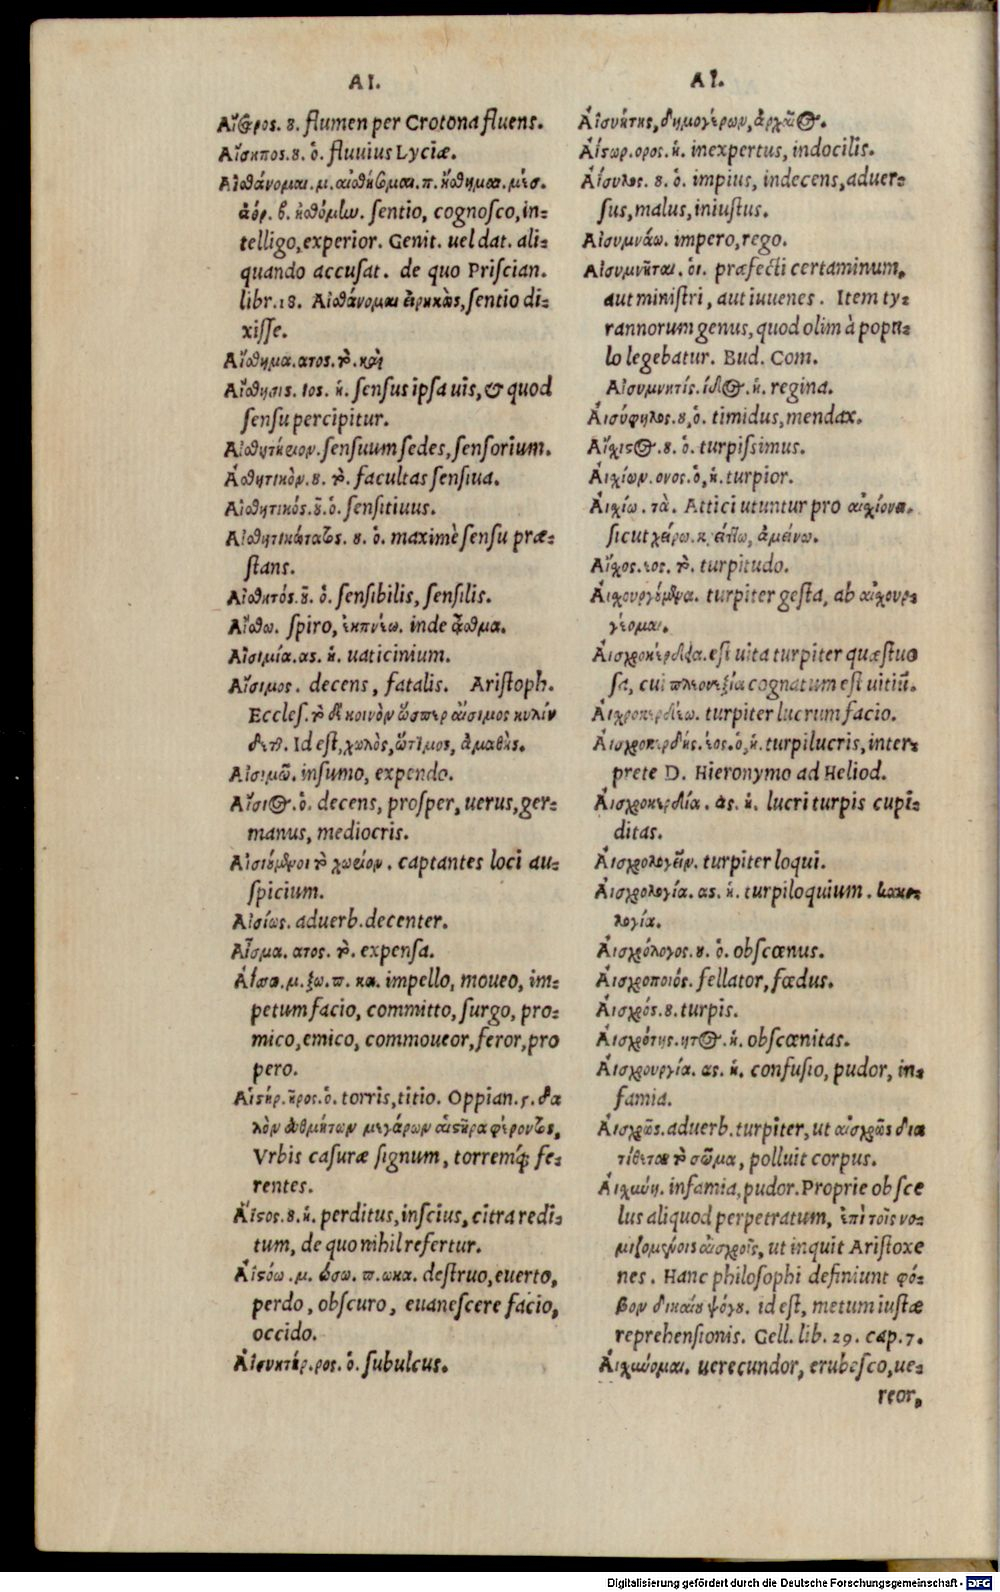 AI.
Αἴσαρος. ου. flumen per Crotona fluens.
Αἴσηπος. ου. ὁ. fluuius Lyciæ.
Αἰσθάνομαι. μ. αἰσθήσομαι. π. ᾔσθημαι. μέσ.
ἀόρ. β. ᾐσθόμην. sentio, cognosco, in-
telligo, experior. Genit. uel dat. ali-
quando accusat. de quo Priscian.
libr. 18. Αἰσθάνομαι εἰρηκὼς, sentio di-
xisse.
Αἴσθημα. ατος. τὸ. καὶ
Αἴσθησις. ιος. ἡ. sensus ipsa uis, & quod
sensu percipitur.
Αἰσθητήριον. sensuum sedes, sensorium.
Αἰσθητικὸν. ου. τὸ. facultas sensiua.
Αἰσθητικός. οῦ. ὁ. sensitiuus.
Αἰσθητικώτατος. ου. ὁ. maximè sensu præ-
stans.
Αἰσθητός. οῦ. ὁ. sensibilis, sensilis.
Αἴσθω. spiro, ἐκπνέω. inde ἆσθμα.
Αἰσιμία. ας. ἡ. uaticinium.
Αἴσιμος. decens, fatalis. Aristoph.
Eccles. τὸ δὲ κοινὸν ὥσπερ αἴσιμος κυλίν
δεται. Id est, χωλὸς, ὥτιμος, ἀμαθὴς.
Αἰσιμῶ. insumo, expendo.
Αἴσιος. ὁ. decens, prosper, uerus, ger-
manus, mediocris.
Αἰσιούμενοι τὸ χωρίον. captantes loci au-
spicium.
Αἰσίως. aduerb. decenter.
Αἶσμα. ατος. τὸ. expensa.
Ἀΐσσω. μ. ξω. π. χα. impello, moueo, im-
petum facio, committo, surgo, pro-
mico, emico, commoueor, feror, pro
pero.
Αἰστήρ. ῆρος. ὁ. torris, titio. Oppian. 5. δα
λὸν ἀϋθμήτων μεγάρων αἰστῆρα φέροντες,
Vrbis casuræ signum, torremq́ue fe-
rentes.
Ἄϊστος. ου. ἡ. perditus, inscius, citra redi-
tum, de quo nihil refertur.
Ἀϊστόω. μ. ώσω. π. ωκα. destruo, euerto,
perdo, obscuro, euanescere facio,
occido.
Αἰσυητέρ. ρος. ὁ. subulcus.
AI.
Αἰσυήτης, δημογέρων, ἀρχαῖος.
Ἀΐστωρ. ορος. ἡ. inexpertus, indocilis.
Αἴσυλος. ου. ὁ. impius, indecens, aduer-
sus, malus, iniustus.
Αἰσυμνάω. impero, rego.
Αἰσυμνῆται. οἱ. præfecti certaminum,
aut ministri, aut iuuenes. Item ty-
rannorum genus, quod olim à popu-
lo legebatur. Bud. Com.
Αἰσυμνητίς. ίδος. ἡ. regina.
Αἰσύφηλος. ου, ὁ. timidus, mendax.
Αἴσχιστος. ου. ὁ. turpissimus.
Αἰσχίων. ονος. ὁ, ἡ. turpior.
Αἰσχίω. τὰ. Attici utuntur pro αἰσχίονα.
sicut χείρω. κ. ἐλάττω, ἀμείνω.
Αἴσχος. εος. τὸ. turpitudo.
Αἰσχουργούμενα. turpiter gesta, ab αἰσχουρ-
γέομαι.
Αἰσχροκέρδεια. est uita turpiter quæstuo
sa, cui πλεονεξία cognatum est uitiū.
Αἰσχροκερδέω. turpiter lucrum facio.
Αἰσχροκερδής. έος. ὁ, ἡ. turpilucris, inter-
prete D. Hieronymo ad Heliod.
Αἰσχροκερδία. ας. ἡ. lucri turpis cupi-
ditas.
Αἰσχρολογεῖν. turpiter loqui.
Αἰσχρολογία. ας. ἡ. turpiloquium. κακο-
λογία.
Αἰσχρόλογος. ου. ὁ. obscœnus.
Αἰσχροποιός. fellator, fœdus.
Αἰσχρός. ου. turpis.
Αἰσχρότης. ητος. ἡ. obscœnitas.
Αἰσχρουργία. ας. ἡ. confusio, pudor, in-
famia.
Αἰσχρῶς. aduerb. turpiter, ut αἰσχρῶς δια
τίθεται τὸ σῶμα, polluit corpus.
Αἰσχύνη. infamia, pudor. Proprie ob sce
lus aliquod perpetratum, ἐπὶ τοῖς νο-
μιζομένοις αἰσχροῖς, ut inquit Aristoxe
nes. Hanc philosophi definiunt φό-
βον δικαίου ψόγου. id est, metum iustæ
reprehensionis. Gell. lib. 29. cap. 7.
Αἰσχύνομαι. uerecundor, erubesco, ue-
reor,
Digitalisierung gefördert durch die Deutsche Forschungsgemeinschaft - DFG